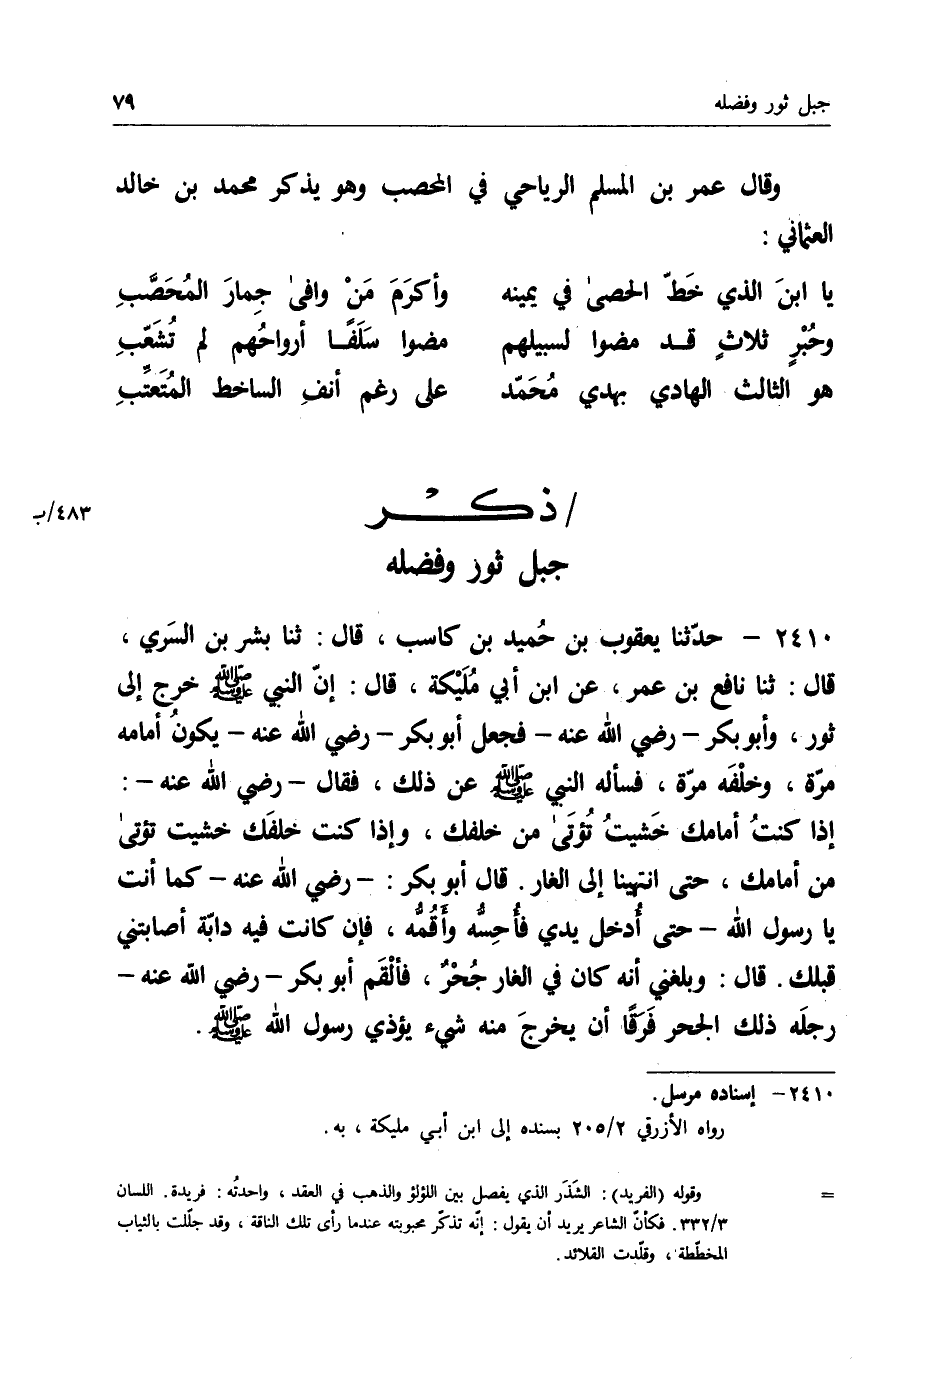 جبل ثور وفضله ٧٩
وقال عمر بن المسلم الرياحي في المحصب وهو يذكر محمد بن خالد
العثماني :
يا ابنَ الذي خَطّ الحصىٰ في يمينه وأكرَمَ مَنْ وافىٰ جِمارَ المُحَصَّبِ
وحُبْرٍ ثلاثٍ قد مضوا لسبيلهم مضوا سَلَفًا أرواحُهم لم تُشَعّبِ
هو الثالث الهادي بهدي مُحَمّد على رغم أنفِ الساخط المُتَعَتِّبِ
/ ذكْر ٤٨٣/ب
جبل ثور وفضله
٢٤١٠ – حدّثنا يعقوب بن حُميد بن كاسب ، قال : ثنا بشر بن السَري ،
قال : ثنا نافع بن عمر ، عن ابن أبي مُلَيْكة ، قال : إنّ النبي ﷺ خرج إلى
ثور ، وأبو بكر – رضي الله عنه – فجعل أبو بكر – رضي الله عنه – يكونُ أمامه
مرّة ، وخلْفَه مرّة ، فسأله النبي ﷺ عن ذلك ، فقال – رضي الله عنه – :
إذا كنتُ أمامك خَشيتُ تُؤتَىٰ من خلفك ، وإذا كنت خلفَك خشيت تؤتىٰ
من أمامك ، حتى انتهينا إلى الغار . قال أبو بكر : – رضي الله عنه – كما أنت
يا رسول الله – حتى أُدخل يدي فأُحِسُّه وأَقُمُّه ، فإن كانت فيه دابّة أصابتني
قبلك . قال : وبلغني أنه كان في الغار جُحْرٌ ، فألْقَم أبو بكر – رضي الله عنه –
رجلَه ذلك الجحر فَرَقًا أن يخرجَ منه شيء يؤذي رسول الله ﷺ .
٢٤١٠ – إسناده مرسل .
رواه الأزرقي ٢٠٥/٢ بسنده إلى ابن أبي مليكة ، به .
= وقوله (الفريد) : الشَذَر الذي يفصل بين اللؤلؤ والذهب في العقد ، واحدتُه : فريدة . اللسان
٣٣٢/٣ . فكأنّ الشاعر يريد أن يقول : إنّه تذكّر محبوبته عندما رأى تلك الناقة ، وقد جلّلت بالثياب
المخطّطة ، وقلّدت القلائد .